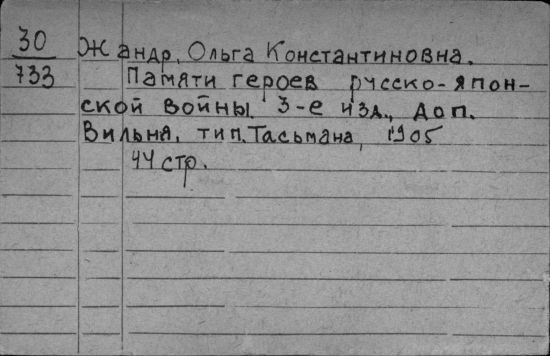 30 Жандр, Ольга Константиновна.
733 Памяти героев русско-япон-
ской войны 3-е изд., доп.
Вильна, тип. Тасьмана, 1905
44 стр.